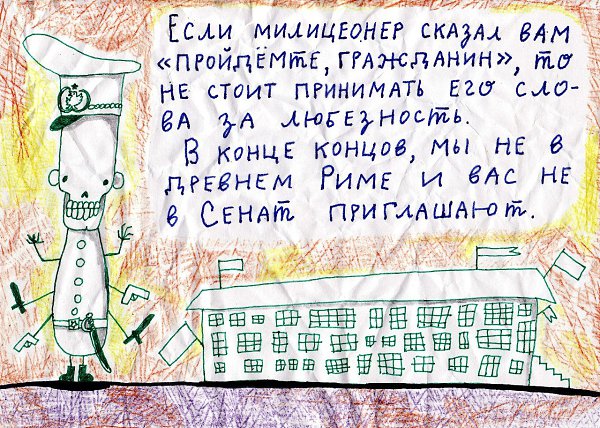 Если милицеонер сказал вам
«пройдёмте, гражданин», то
не стоит принимать его сло-
ва за любезность.
В конце концов, мы не в
древнем Риме и вас не
в Сенат приглашают.